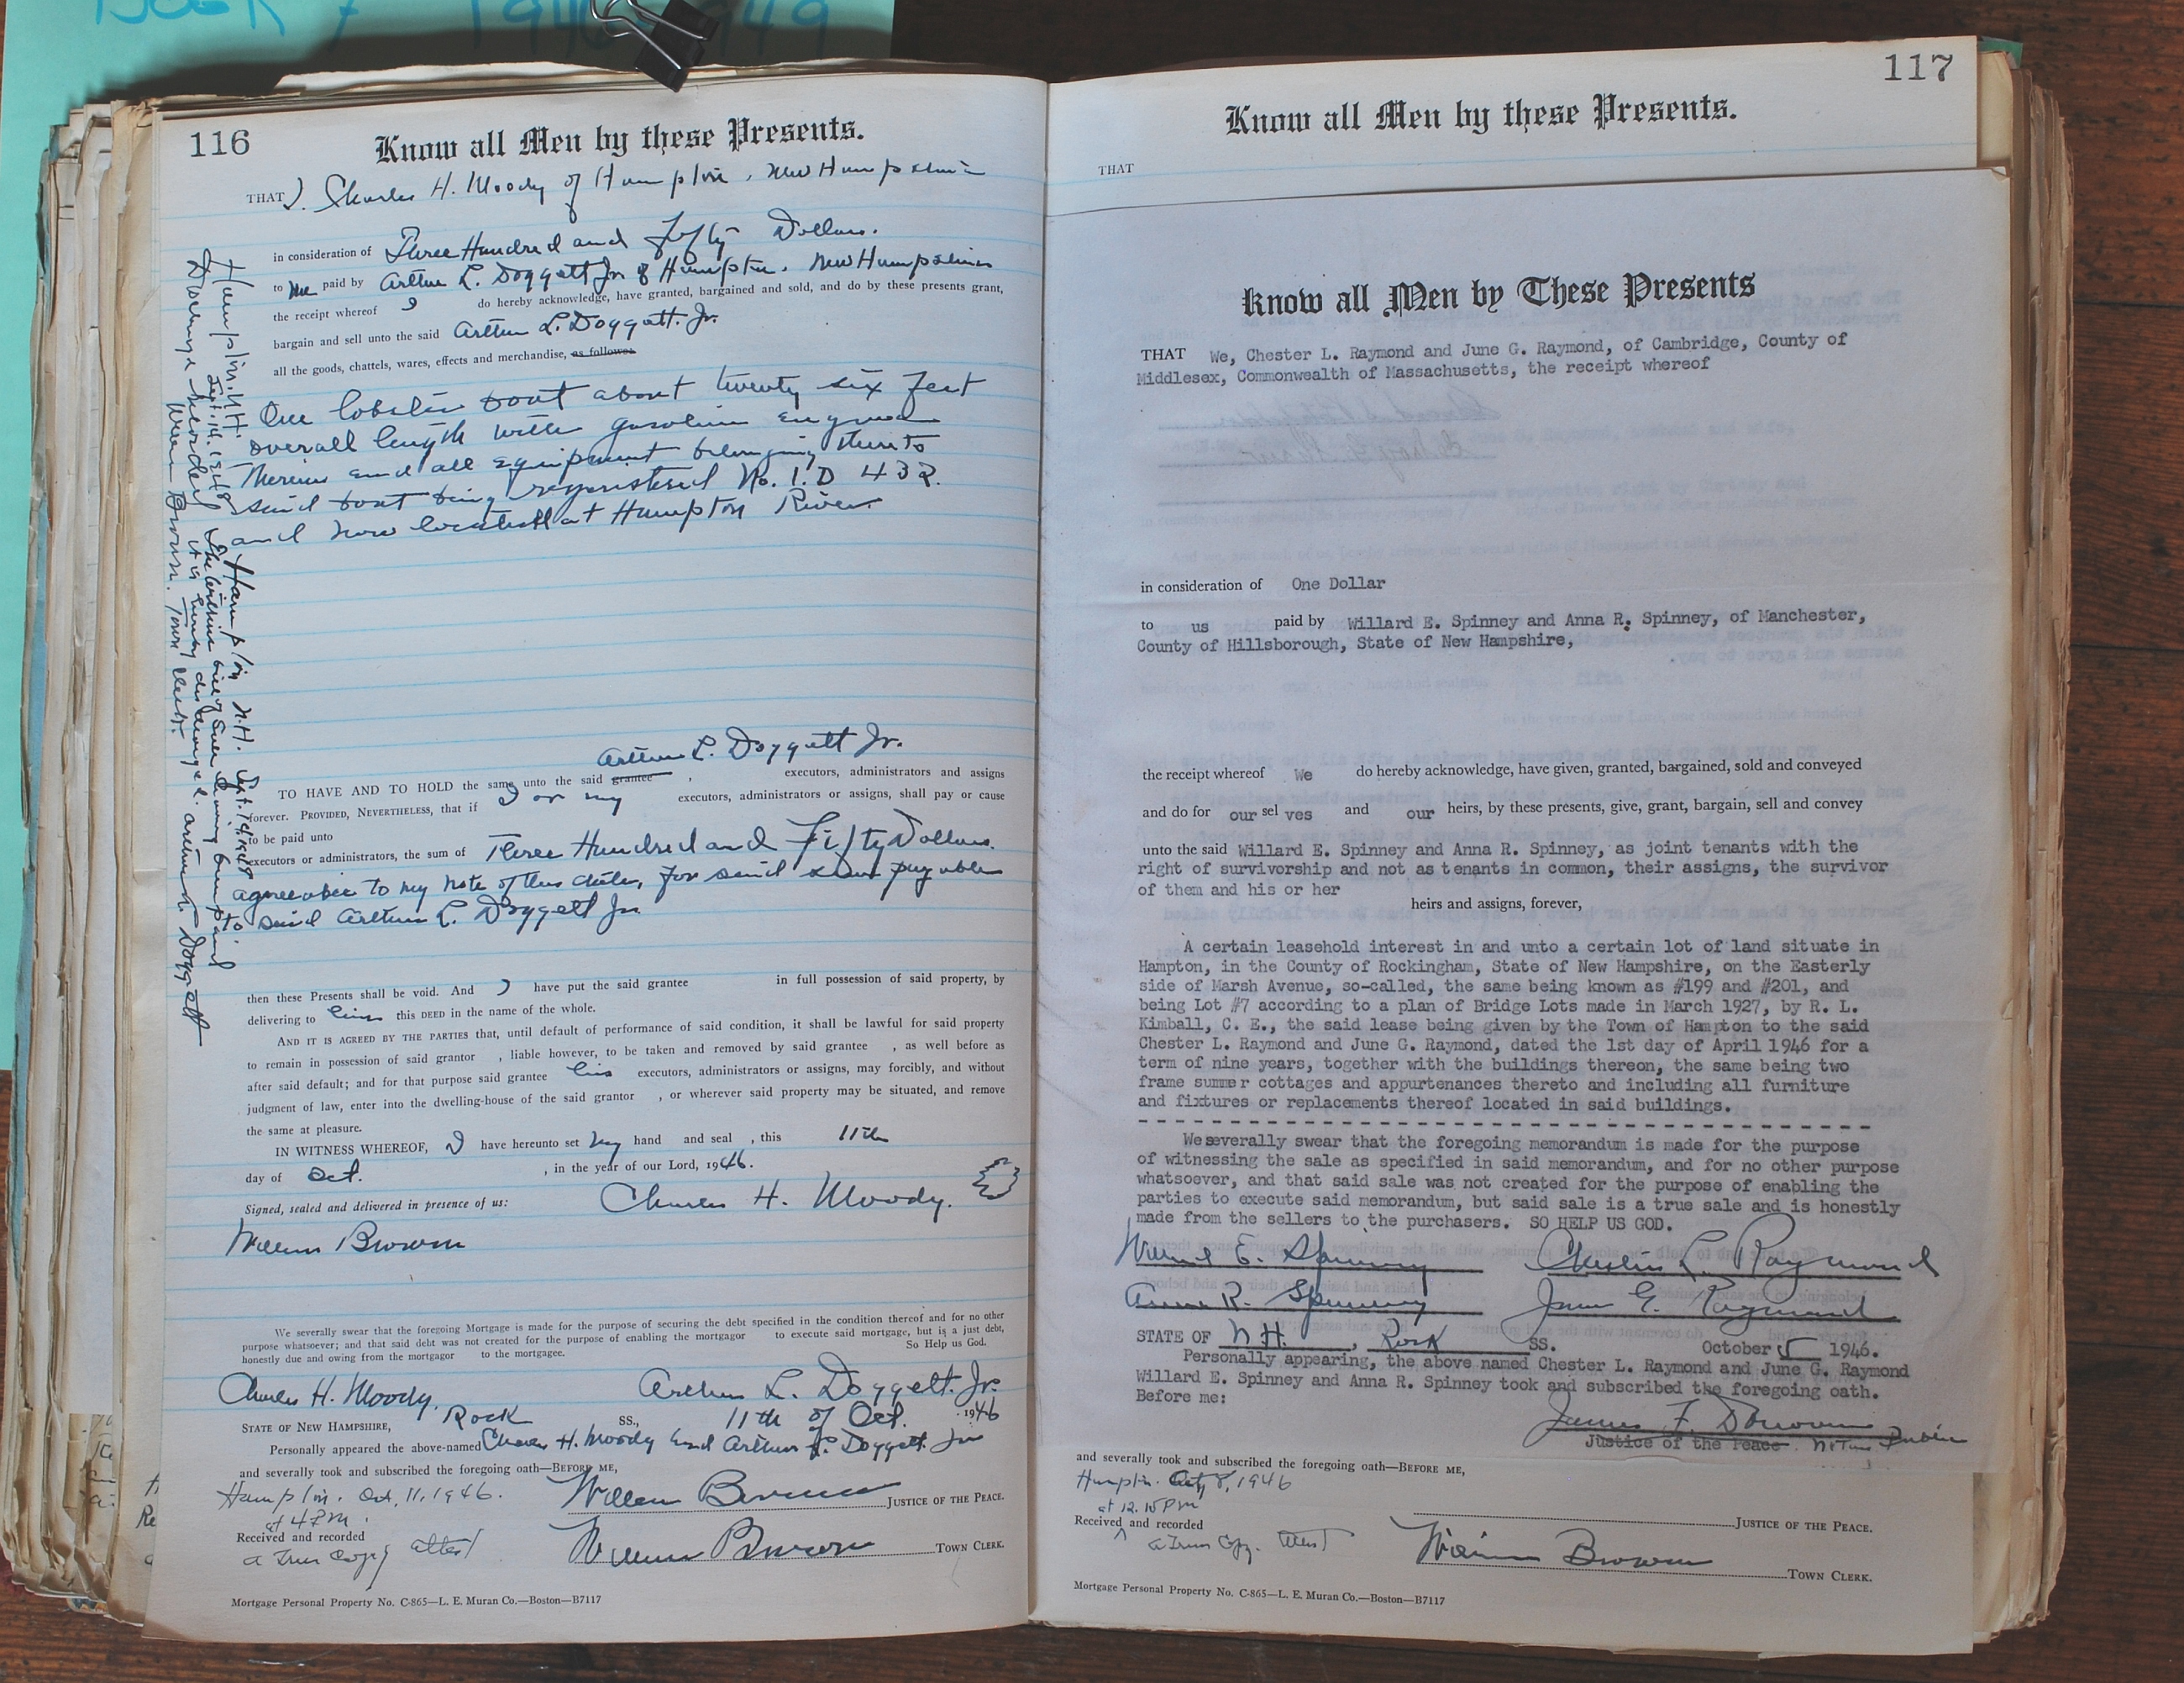 Book 7 1946-1949
116
Know all Men by these Presents.
THAT I, Charles H. Moody of Hampton, New Hampshire
in consideration of Three Hundred and Fifty Dollars.
to me paid by Arthur L. Doggett Jr of Hampton, New Hampshire
the receipt whereof I do hereby acknowledge, have granted, bargained and sold, and do by these presents grant,
bargain and sell unto the said Arthur L. Doggett. Jr.
all the goods, chattels, wares, effects and merchandise, as follows:
One lobster boat about twenty six feet
overall length with gasoline engine
therein and all equipment belonging thereto
said boat being registered No. 1.D 432.
and now located at Hampton River.
Arthur L. Doggett Jr.
TO HAVE AND TO HOLD the same unto the said grantee , executors, administrators and assigns
forever. PROVIDED, NEVERTHELESS, that if I or my executors, administrators or assigns, shall pay or cause
to be paid unto
executors or administrators, the sum of Three Hundred and Fifty Dollars.
agreeable to my note of this date, for said sum payable
to said Arthur L. Doggett Jr.
then these Presents shall be void. And I have put the said grantee in full possession of said property, by
delivering to him this DEED in the name of the whole.
AND IT IS AGREED BY THE PARTIES that, until default of performance of said condition, it shall be lawful for said property
to remain in possession of said grantor , liable however, to be taken and removed by said grantee , as well before as
after said default; and for that purpose said grantee his executors, administrators or assigns, may forcibly, and without
judgment of law, enter into the dwelling-house of the said grantor , or wherever said property may be situated, and remove
the same at pleasure.
IN WITNESS WHEREOF, I have hereunto set my hand and seal , this 11th
day of Oct. , in the year of our Lord, 1946.
Signed, sealed and delivered in presence of us: Charles H. Moody.
William Brown
We severally swear that the foregoing Mortgage is made for the purpose of securing the debt specified in the condition thereof and for no other
purpose whatsoever; and that said debt was not created for the purpose of enabling the mortgagor to execute said mortgage, but is a just debt,
honestly due and owing from the mortgagor to the mortgagee. So Help us God.
Charles H. Moody. Arthur L. Doggett. Jr.
STATE OF NEW HAMPSHIRE, Rock SS., 11th of Oct. 1946
Personally appeared the above-named Charles H. Moody and Arthur L. Doggett Jr
and severally took and subscribed the foregoing oath—BEFORE ME,
Hampton. Oct, 11, 1946. William Brown JUSTICE OF THE PEACE.
at 4 P.M.
Received and recorded
a True Copy attest William Brown TOWN CLERK.
Mortgage Personal Property No. C-865—L. E. Muran Co.—Boston—B7117
Hampton N.H. Sept. 14 1948
The within bill of sale having been paid
it is hereby discharged. Arthur L. Doggett
Hampton. N.H. Sept. 14. 1948
Discharge recorded
William Brown. Town Clerk.
117
Know all Men by these Presents.
THAT
Know all Men by These Presents
THAT We, Chester L. Raymond and June G. Raymond, of Cambridge, County of
Middlesex, Commonwealth of Massachusetts, the receipt whereof
in consideration of One Dollar
to us paid by Willard E. Spinney and Anna R. Spinney, of Manchester,
County of Hillsborough, State of New Hampshire,
the receipt whereof We do hereby acknowledge, have given, granted, bargained, sold and conveyed
and do for our sel ves and our heirs, by these presents, give, grant, bargain, sell and convey
unto the said Willard E. Spinney and Anna R. Spinney, as joint tenants with the
right of survivorship and not as tenants in common, their assigns, the survivor
of them and his or her
heirs and assigns, forever,
A certain leasehold interest in and unto a certain lot of land situate in
Hampton, in the County of Rockingham, State of New Hampshire, on the Easterly
side of Marsh Avenue, so-called, the same being known as #199 and #201, and
being Lot #7 according to a plan of Bridge Lots made in March 1927, by R. L.
Kimball, C. E., the said lease being given by the Town of Hampton to the said
Chester L. Raymond and June G. Raymond, dated the 1st day of April 1946 for a
term of nine years, together with the buildings thereon, the same being two
frame summer cottages and appurtenances thereto and including all furniture
and fixtures or replacements thereof located in said buildings.
We severally swear that the foregoing memorandum is made for the purpose
of witnessing the sale as specified in said memorandum, and for no other purpose
whatsoever, and that said sale was not created for the purpose of enabling the
parties to execute said memorandum, but said sale is a true sale and is honestly
made from the sellers to the purchasers. SO HELP US GOD.
Willard E. Spinney Chester L. Raymond
Anna R. Spinney June G. Raymond
STATE OF N.H. , Rock SS. October 5 1946.
Personally appearing, the above named Chester L. Raymond and June G. Raymond
Willard E. Spinney and Anna R. Spinney took and subscribed the foregoing oath.
Before me:
James F. Donovan
Justice of the Peace Notary Public
and severally took and subscribed the foregoing oath—BEFORE ME,
Hampton. Oct 8, 1946
at 12.15 PM
JUSTICE OF THE PEACE.
Received and recorded
a True Copy. Attest William Brown TOWN CLERK.
Mortgage Personal Property No. C-865—L. E. Muran Co.—Boston—B7117